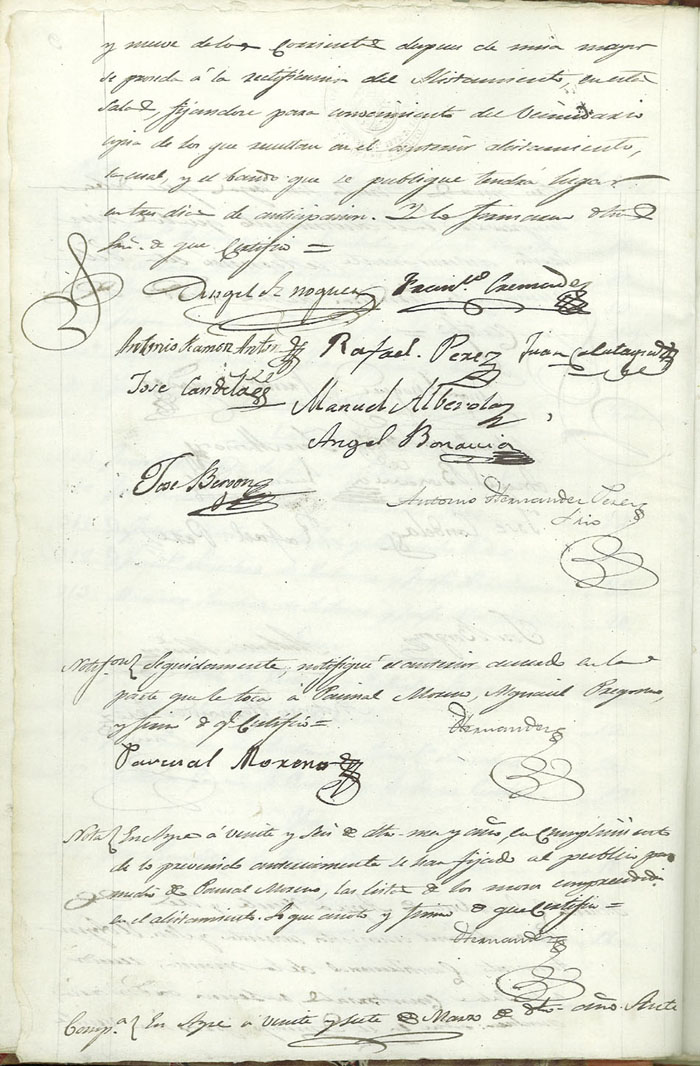 y nueve de los corrientes despues de misa mayor
se proceda á la rectificacion del Alistamiento, en esta
Sala, fijandose para conocimiento del Vecindario
copia de los que resultan en el anterior alistamiento,
lo cual y el bando que se publique tendrá lugar
en tres dias de anticipacion. Y lo firmaron dhos
Sres. de que Certifico =
Franco Cremades
Antonio Ramon Anton Rafael Perez Juan Calatayud
José Candela Manuel Alberola
Angel Bonavia
José
Antonio Hernandez Perez
Srio
Notifon Seguidamente, notifiqué el anterior acuerdo en la
parte que le toca á Pascual Moreno, Alguacil Pregonero,
y firmó de q. Certifico =
Hernandez
Pascual Moreno
Nota En Aspe á veinte y seis de dho. mes y año, en cumplimiento
de lo prevenido anteriormente se han fijado al publico por
medio de Pascual Moreno, las listas de los mozos comprendidos
en el alistamiento. Lo que anoto y firmo de que Certifico =
Hernandez
Comp.a En Aspe á veinte y siete de Marzo de dho. año. Ante